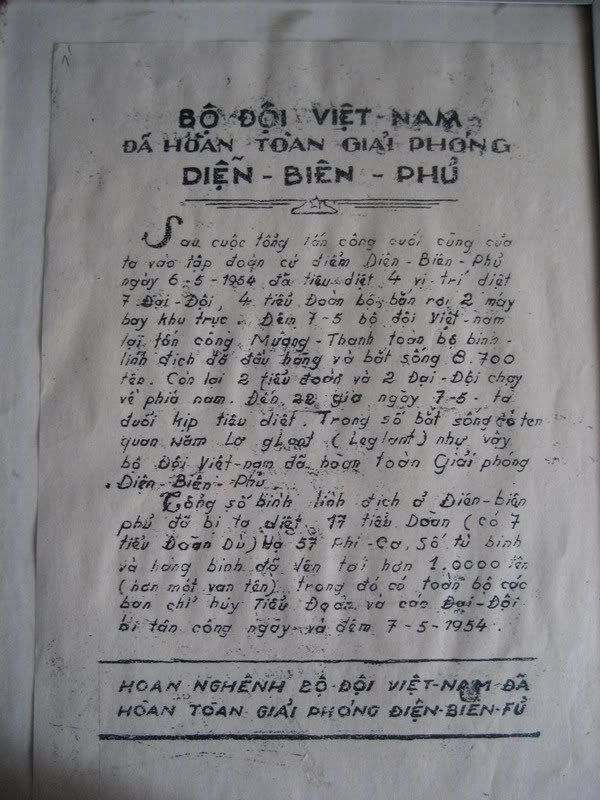 BỘ ĐỘI VIỆT-NAM
ĐÃ HOÀN TOÀN GIẢI PHÓNG
DIỆN-BIÊN-PHỦ
Sau cuộc tổng tấn công cuối cùng của
ta vào tập đoàn cứ điểm Diện-Biên-Phủ
ngày 6-5-1954 đã tiêu diệt 4 vị trí diệt
7 Đại-Đội, 4 tiểu Đoàn bộ, bắn rơi 2 máy
bay khu trục. Đêm 7-5 bộ đội Việt-nam
lại tấn công Mường-Thanh toàn bộ binh-
lính địch đã đầu hàng và bắt sống 8.700
tên. Còn lại 2 tiểu đoàn và 2 Đại-Đội chạy
về phía nam. Đến 22 giờ ngày 7-5- ta
đuổi kịp tiêu diệt. Trong số bắt sống có tên
quan Năm Lơ glant (Leglant) như vậy
bộ Đội Việt-nam đã hoàn toàn Giải phóng
Diện-Biên-Phủ.
Tổng số binh lính địch ở Điên-biên
phủ đã bị ta diệt 17 tiểu Đoàn (có 7
tiểu Đoàn Dù) Hạ 57 Phi-Cơ, Số tù binh
và hàng binh đã lên tới hơn 1.0000 tên
(hơn một vạn tên) trong đó có toàn bộ các
ban chỉ huy Tiểu Đoàn và các Đại-Đội
bị tấn công ngày và đêm 7-5-1954.
HOAN NGHÊNH BỘ ĐỘI VIỆT-NAM ĐÃ
HOÀN TOÀN GIẢI PHÓNG ĐIỆN-BIÊN-FỦ